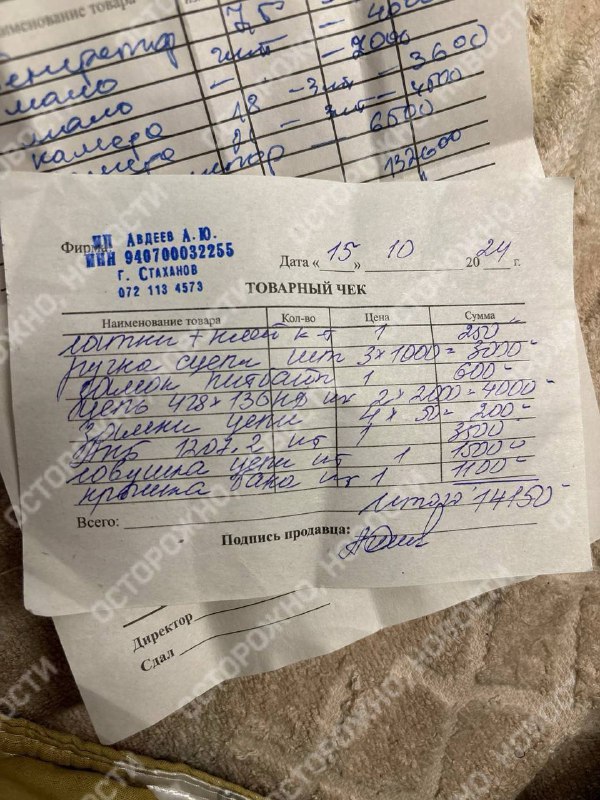 именование товара
75 — 4000
шт — 2000
мало — " —
мало 18 — 3шт — 3600
камера 21 — 3шт — 4500
6500
132600
Фирма ИП АВДЕЕВ А.Ю.
ИНН 940700032255
Г. СТАХАНОВ
072 113 4573
Дата « 15 » 10 20 24 г.
ТОВАРНЫЙ ЧЕК
Наименование товара Кол-во Цена Сумма
латки + клей к-т 1 250-
ручка сцепл шт 3 x 1000 = 3000-
замок питбайк 1 600-
цепь 428 x 136 2 x 2000 = 4000-
Замки цепи 4 x 50 = 200-
АКБ 1207.2 шт 1 3500-
ловушка цепи шт 1 1500-
крышка бака шт 1 1100-
итого 14150-
Всего:
Подпись продавца:
Директор
Сдал
ОСТОРОЖНО, НОВОСТИ